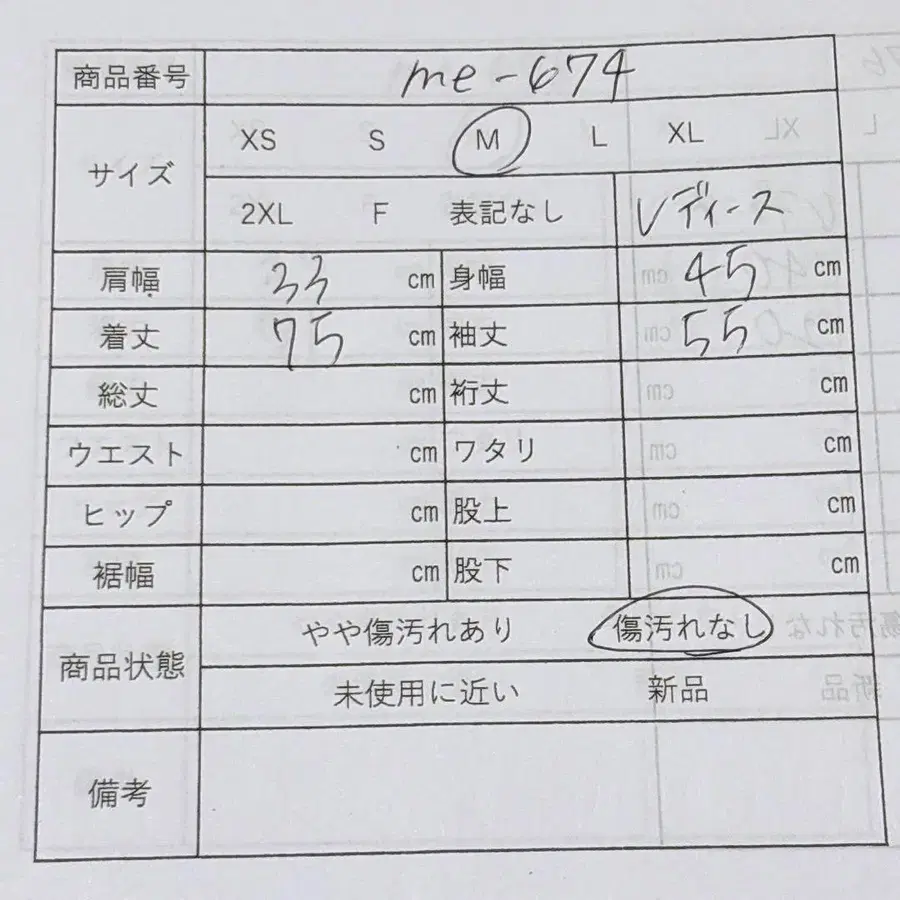 商品番号 me-674
サイズ XS S M L XL
2XL F 表記なし レディース
肩幅 33 cm 身幅 45 cm
着丈 75 cm 袖丈 55 cm
総丈 cm 裄丈 cm
ウエスト cm ワタリ cm
ヒップ cm 股上 cm
裾幅 cm 股下 cm
商品状態 やや傷汚れあり 傷汚れなし
未使用に近い 新品
備考